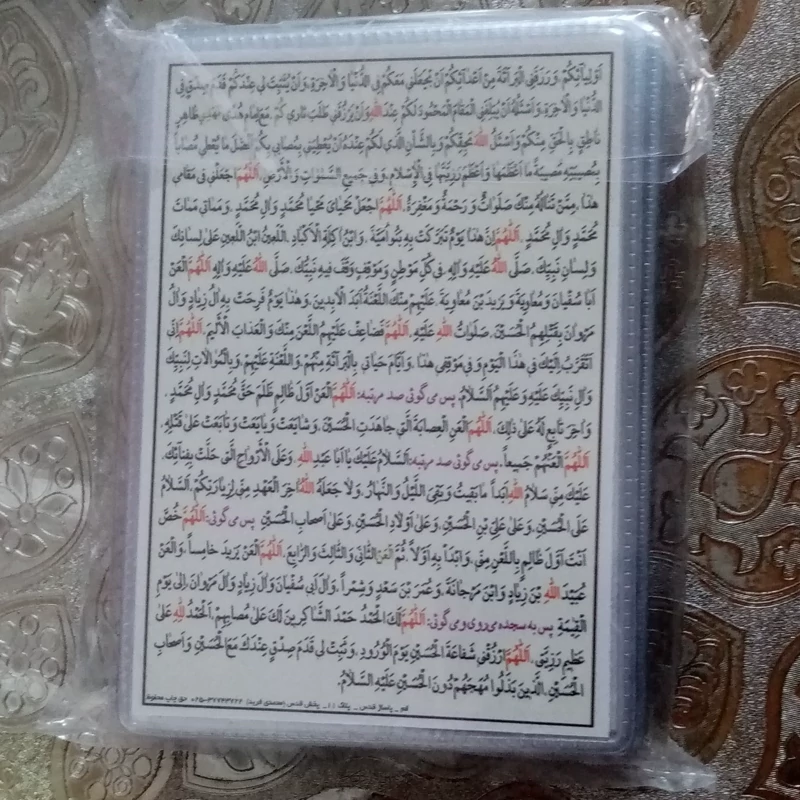 اَوْلِيآئِكُمْ، وَرَزَقَنِي الْبَرآئَةَ مِنْ اَعْدآئِكُمْ اَنْ يَجْعَلَني مَعَكُمْ فِي الدُّنْيا وَالْاخِرَةِ، وَاَنْ يُثَبِّتَ لي عِنْدَكُمْ قَدَمَ صِدْقٍ فِي
الدُّنْيا وَالْاخِرَةِ، وَاَسْئَلُهُ اَنْ يُبَلِّغَنِي الْمَقامَ الْمَحْمُودَ لَكُمْ عِنْدَ اللهِ، وَاَنْ يَرْزُقَني طَلَبَ ثاري كُمْ، مَعَ اِمامٍ هُدًى ظاهِرٍ
ناطِقٍ بِالْحَقِّ مِنْكُمْ، وَاَسْئَلُ اللهَ بِحَقِّكُمْ، وَبِالشَّاْنِ الَّذي لَكُمْ عِنْدَهُ اَنْ يُعْطِيَني بِمُصابي بِكُمْ اَفْضَلَ ما يُعْطي مُصاباً
بِمُصيبَتِهِ مُصيبَةً ما اَعْظَمَها وَاَعْظَمَ رَزِيَّتَها فِي الْاِسْلامِ، وَفي جَميعِ السَّمٰواتِ وَالْاَرْضِ، اَللّٰهُمَّ اجْعَلْني في مَقامي
هذا، مِمَّنْ تَنالُهُ مِنْكَ صَلَواتٌ وَرَحْمَةٌ وَمَغْفِرَةٌ، اَللّٰهُمَّ اجْعَلْ مَحْيايَ مَحْيا مُحَمَّدٍ وَالِ مُحَمَّدٍ، وَمَماتي مَماتَ
مُحَمَّدٍ وَالِ مُحَمَّدٍ، اَللّٰهُمَّ اِنَّ هذا يَوْمٌ تَبَرَّكَتْ بِهِ بَنُو اُمَيَّةَ، وَابْنُ اكِلَةِ الْاَكْبادِ، اللَّعينُ ابْنُ اللَّعينِ عَلى لِسانِكَ
وَلِسانِ نَبِيِّكَ، صَلَّى اللهُ عَلَيْهِ وَالِهِ، في كُلِّ مَوْطِنٍ وَمَوْقِفٍ وَقَفَ فيهِ نَبِيُّكَ، صَلَّى اللهُ عَلَيْهِ وَالِهِ اَللّٰهُمَّ الْعَنْ
اَبا سُفْيانَ وَمُعاوِيَةَ وَيَزيدَ بْنَ مُعاوِيَةَ، عَلَيْهِمْ مِنْكَ اللَّعْنَةُ اَبَدَ الْابِدينَ، وَهذا يَوْمٌ فَرِحَتْ بِهِ الُ زِيادٍ وَالُ
مَرْوانَ بِقَتْلِهِمُ الْحُسَيْنَ، صَلَواتُ اللهِ عَلَيْهِ، اَللّٰهُمَّ فَضاعِفْ عَلَيْهِمُ اللَّعْنَ مِنْكَ وَالْعَذابَ الْاَليمَ، اَللّٰهُمَّ اِنّي
اَتَقَرَّبُ اِلَيْكَ في هذَا الْيَوْمِ، وَفي مَوْقِفي هذا، وَاَيّامِ حَياتي بِالْبَرآئَةِ مِنْهُمْ وَاللَّعْنَةِ عَلَيْهِمْ، وَبِالْمُوالاتِ لِنَبِيِّكَ
وَالِ نَبِيِّكَ عَلَيْهِ وَعَلَيْهِمُ السَّلامُ، پس می گوئی صد مرتبه: اَللّٰهُمَّ الْعَنْ اَوَّلَ ظالِمٍ ظَلَمَ حَقَّ مُحَمَّدٍ وَالِ مُحَمَّدٍ،
وَاخِرَ تابِعٍ لَهُ عَلى ذلِكَ، اَللّٰهُمَّ الْعَنِ الْعِصابَةَ الَّتي جاهَدَتِ الْحُسَيْنَ، وَشايَعَتْ وَبايَعَتْ وَتابَعَتْ عَلى قَتْلِهِ،
اَللّٰهُمَّ الْعَنْهُمْ جَميعاً، پس می گوئی صد مرتبه: اَلسَّلامُ عَلَيْكَ يا اَبا عَبْدِ اللهِ، وَعَلَى الْاَرْواحِ الَّتي حَلَّتْ بِفِنآئِكَ،
عَلَيْكَ مِنّي سَلامُ اللهِ اَبَداً ما بَقيتُ وَبَقِيَ اللَّيْلُ وَالنَّهارُ، وَلا جَعَلَهُ اللهُ اخِرَ الْعَهْدِ مِنّي لِزِيارَتِكُمْ، اَلسَّلامُ
عَلَى الْحُسَيْنِ، وَعَلى عَلِيِّ بْنِ الْحُسَيْنِ، وَعَلى اَوْلادِ الْحُسَيْنِ، وَعَلى اَصْحابِ الْحُسَيْنِ، پس می گوئی: اَللّٰهُمَّ خُصَّ
اَنْتَ اَوَّلَ ظالِمٍ بِاللَّعْنِ مِنّي، وَابْدَاْ بِهِ اَوَّلاً، ثُمَّ الْعَنِ الثّانِيَ وَالثّالِثَ وَالرّابِعَ، اَللّٰهُمَّ الْعَنْ يَزيدَ خامِساً، وَالْعَنْ
عُبَيْدَ اللهِ بْنَ زِيادٍ وَابْنَ مَرْجانَةَ، وَعُمَرَ بْنَ سَعْدٍ وَشِمْراً، وَالَ اَبي سُفْيانَ وَالَ زِيادٍ وَالَ مَرْوانَ، اِلى يَوْمِ
الْقِيٰمَةِ پس به سجده می روی و می گوئی: اَللّٰهُمَّ لَكَ الْحَمْدُ حَمْدَ الشّاكِرينَ لَكَ عَلى مُصابِهِمْ، اَلْحَمْدُ لِلّٰهِ عَلى
عَظيمِ رَزِيَّتي، اَللّٰهُمَّ ارْزُقْني شَفاعَةَ الْحُسَيْنِ يَوْمَ الْوُرُودِ، وَثَبِّتْ لي قَدَمَ صِدْقٍ عِنْدَكَ مَعَ الْحُسَيْنِ وَاَصْحابِ
الْحُسَيْنِ، الَّذينَ بَذَلُوا مُهَجَهُمْ دُونَ الْحُسَيْنِ عَلَيْهِ السَّلامُ.
قم _ پاساژ قدس _ پلاک ۱۱_ پخش قدس (محمدی فرید) ۳۷۷۴۳۴۲۴-۰۲۵ حق چاپ محفوظ